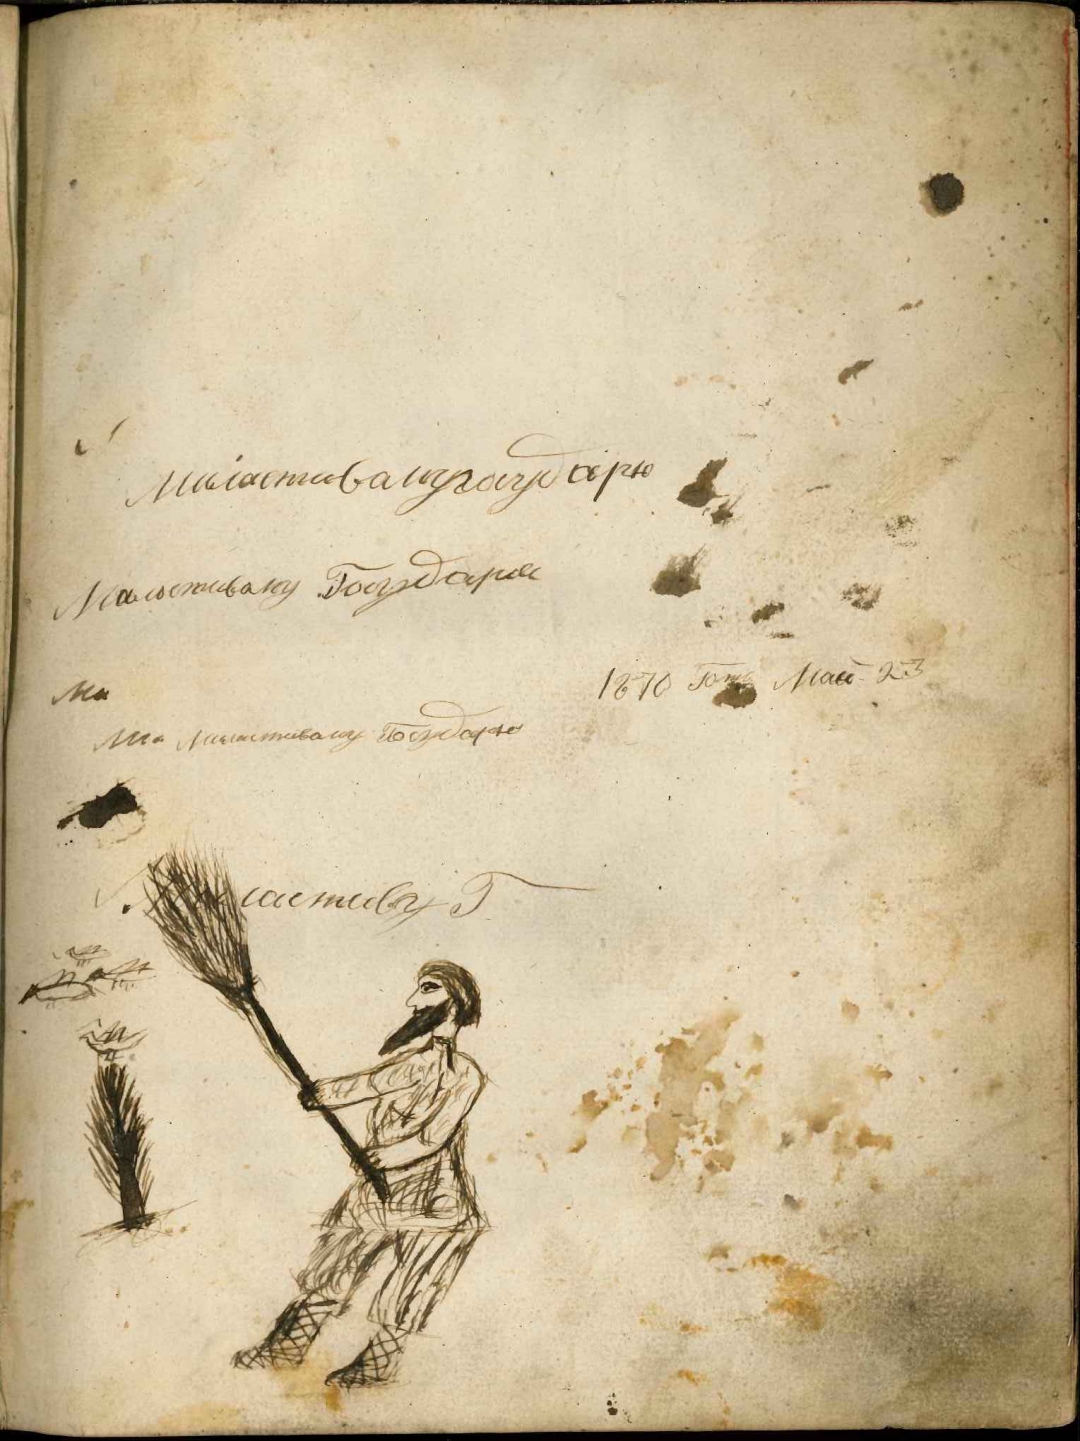 Миластиваму государю
Миластиваму Государю
Ми
1870 Года Май 23
Ми Миластиваму Государю
Миластиву Г